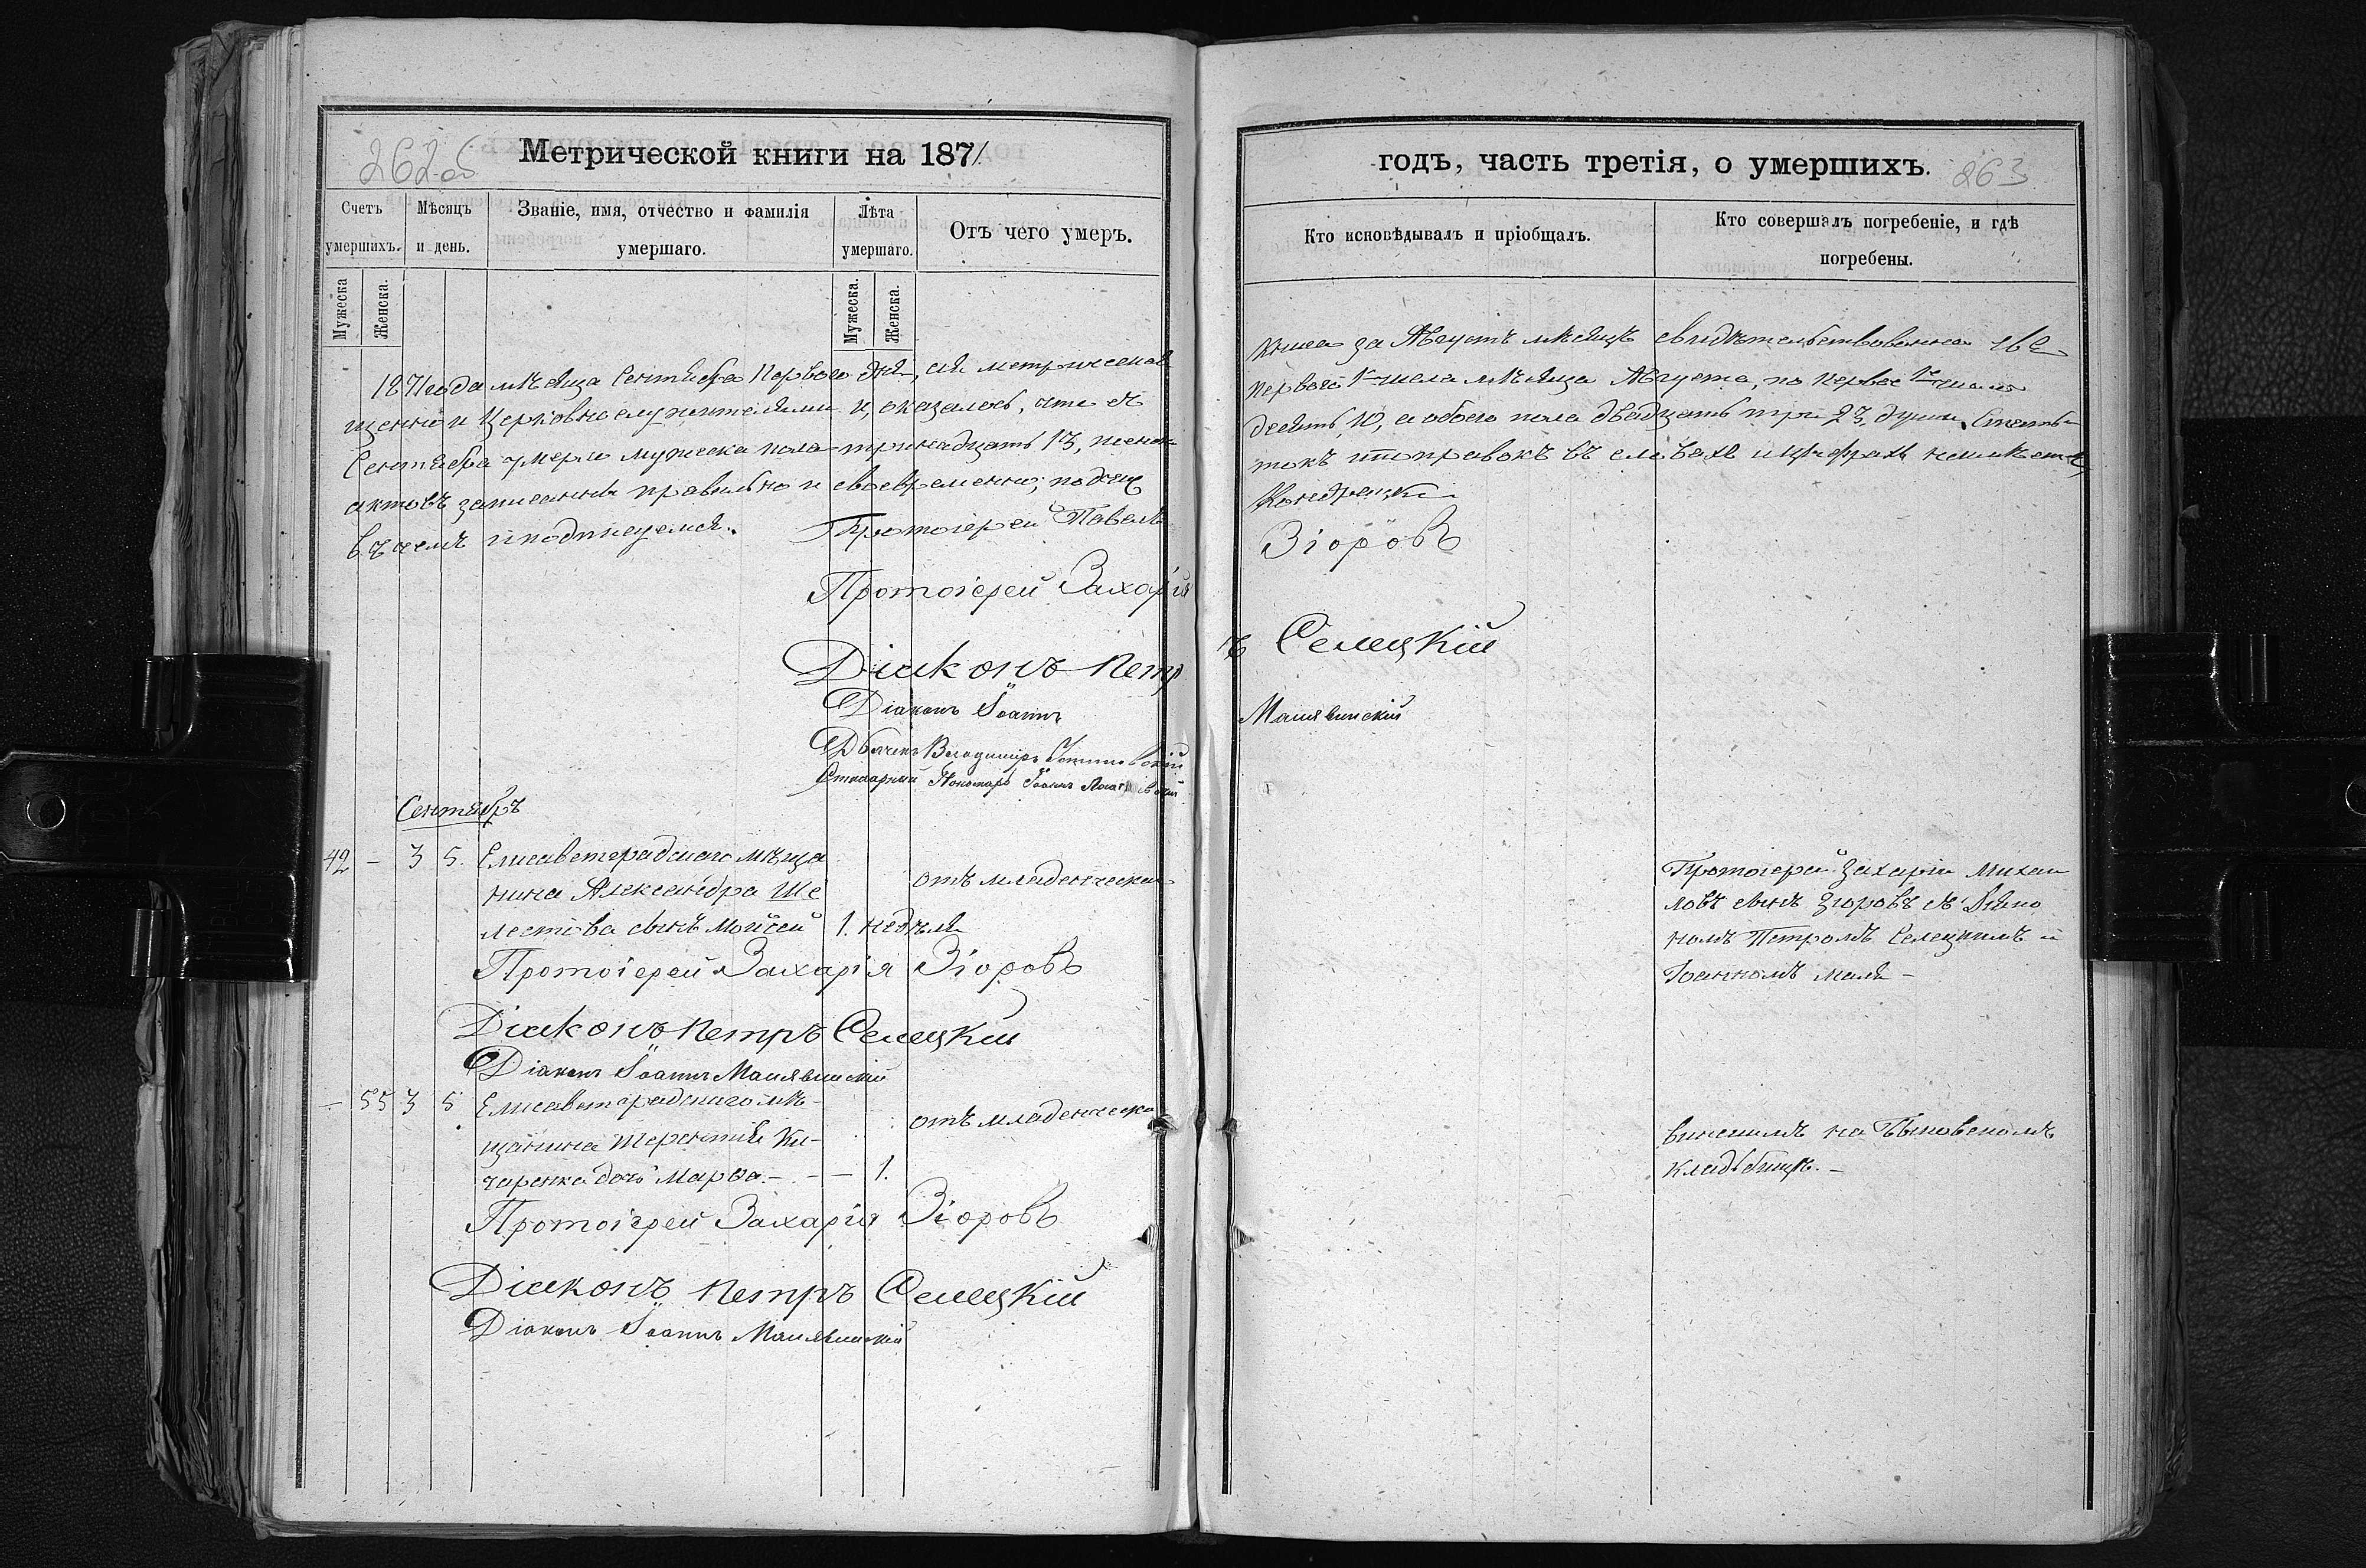 262об
Метрической книги на 1871
Счетъ умершихъ.
Мѣсяцъ и день.
Званіе, имя, отчество и фамилія умершаго.
Лѣта умершаго.
Отъ чего умеръ.
Мужеска
Женска.
Мужеска.
Женска.
1871 года мѣсяца Сентября Перваго дня, сія метрическая
щенно и Церковнослужителями и оказалось, что съ
Сентября умерло мужеска пола тринадцать 13, женска
актовъ записанны правильно и своевременно; подчис
въ чемъ и подписуемся. Протоіерей Павелъ
Протоіерей Захарія
Діаконъ Петр
Діаконъ Іоаннъ
Дьячекъ Владиміръ
Пономарь Іоаннъ
Сентябрь
42 - 3 5. Елисаветградскаго мѣща
нина Александра Ше
лестова сынъ Мойсей 1. недѣля
отъ младенческая
Протоіерей Захарія Зіоровъ
Діаконъ Петръ Селецкій
Діаконъ Іоаннъ Малявинскій
- 55 3 5 Елисаветградскаго мѣ-
щанина Терентія Ки-
чаренка дочь Марѳа. - - 1.
отъ младенческа
Протоіерей Захарія Зіоровъ
Діаконъ Петръ Селецкій
Діаконъ Іоаннъ Малявинскій
годъ, часть третія, о умершихъ.
263
Кто исповѣдывалъ и пріобщалъ.
Кто совершалъ погребеніе, и гдѣ погребены.
книга за Августъ мѣсяцъ свидѣтельствованна свя
перваго 1 числа мѣсяца Августа, по первое 1е число
десять, 10, а обоего пола двадцать три 23, души. Статьи
токъ и поправокъ въ словахъ и цифрахъ неимѣется
Кондрацкій
Зіоровъ
ъ Селецкій
Малявинскій
Протоіерей Захарія Михаи
ловъ сынъ Зіоровъ съ Діако
номъ Петромъ Селецкимъ и
Іоанномъ Маля-
винскимъ на Быковскомъ
кладьбищѣ. -